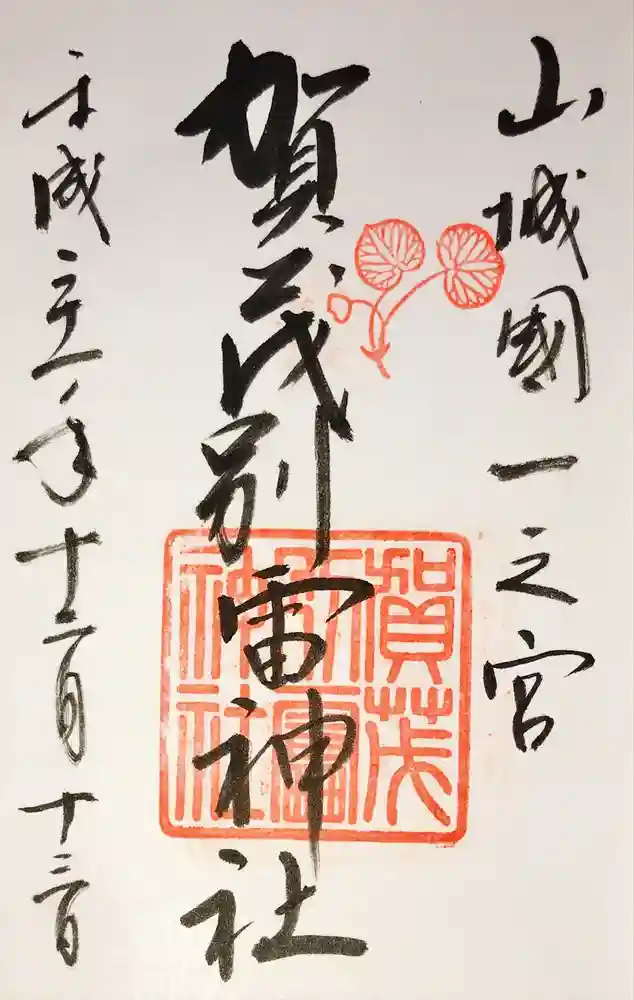 山城國一之宮
賀茂別雷神社
平成二十一年十二月十三日
賀茂
別雷
神社